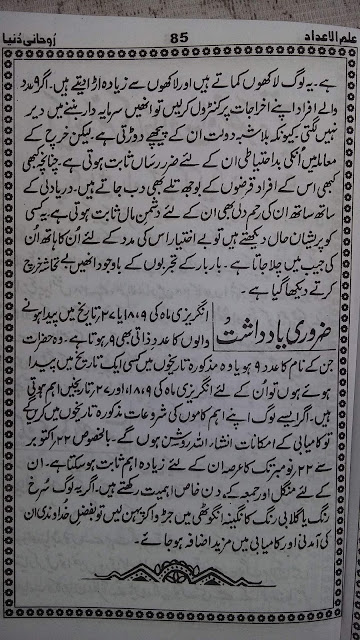 علم الاعداد 85 روحانی دُنیا
ہے۔ یہ لوگ لاکھوں کماتے ہیں اور لاکھوں سے زیادہ اڑا دیتے ہیں۔ اگر ۹ عدد
والے افراد اپنے اخراجات پر کنٹرول کرلیں تو انھیں سرمایہ دار بننے میں دیر
نہیں لگتی کیونکہ بلاشبہ دولت ان کے پیچھے دوڑتی ہے لیکن خرچ کے
معاملہ میں اُنکی بداحتیاطی ان کے لئے ضرر رساں ثابت ہوتی ہے چنانچہ کبھی
کبھی اس کے افراد قرضوں کے بوجھ تلے بھی دب جاتے ہیں۔ دریا دلی کے
ساتھ ساتھ ان کی رحم دلی بھی ان کے لئے دشمن مال ثابت ہوتی ہے یہ کسی
کو پریشان حال دیکھتے ہیں تو بے اختیار اس کی مدد کے لئے اُن کا ہاتھ اُن
کی جیب میں چلا جاتا ہے۔ بار بار کے تجربوں کے باوجود انھیں بے تحاشہ خرچ
کرتے دیکھا گیا ہے۔
ضروری یادداشت انگریزی ماہ کی ۹، ۱۸ یا ۲۷ تاریخ میں پیدا ہونے
والوں کا عدد ذاتی بھی ۹ ہوتا ہے۔ وہ حضرات
جن کے نام کا عدد ۹ ہو یا وہ مذکورہ تاریخوں میں کسی ایک تاریخ میں پیدا
ہوئے ہوں تو اُن کے لئے انگریزی ماہ کی ۹، ۱۸ اور ۲۷ تاریخیں اہم ہوتی
ہیں۔ اگر ایسے لوگ اپنے اہم کاموں کی شروعات مذکورہ تاریخوں میں کریں گے
تو کامیابی کے امکانات انشاء اللہ روشن ہوں گے۔ بالخصوص ۲۲ اکتوبر
سے ۲۲ نومبر تک کا عرصہ ان کے لئے زیادہ اہم ثابت ہوسکتا ہے۔ ان
کے لئے منگل اور جمعہ کے دن خاص اہمیت رکھتے ہیں۔ اگر یہ لوگ سُرخ
رنگ یا گلابی رنگ کا نگینہ انگوٹھی میں جڑوا کر پہن لیں تو بفضلِ خداوندی ان
کی آمدنی اور کامیابی میں مزید اضافہ ہو جائے۔